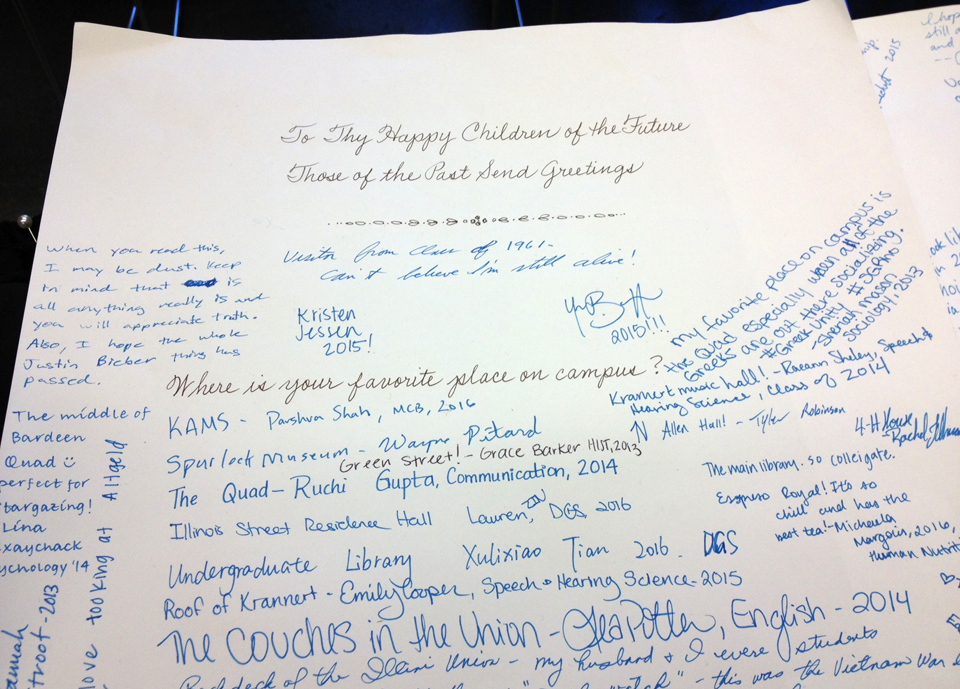 To Thy Happy Children of the Future
Those of the Past Send Greetings
Visitor from Class of 1961-
Can't believe I'm still alive!
When you read this,
I may be dust. Keep
in mind that is
all anything really is and
you will appreciate truth.
Also, I hope the whole
Justin Bieber thing has
passed.
Kristen
Jessen
2015!
2015!!!
my favorite place on campus is
the Quad especially when all of the
Greeks are out there socializing.
#Greek Unity #SGRHO
mason
sociology, 2013
Where is your favorite place on campus?
KAMS - Parshwa Shah, MCB, 2016
Spurlock Museum - Wayne Pitard
Green Street! - Grace Barker HIST, 2013
The Quad - Ruchi Gupta, Communication, 2014
Illinois Street Residence Hall Lauren, DGS 2016
Undergraduate Library Xulixiao Tian 2016. DGS
Roof of Krannert - Emily Cooper, Speech + Hearing Science - 2015
The Couches in the Union - Lea Potter, English - 2014
deck of the Illini Union - my husband & I were students
- this was the Vietnam War
Krannert music hall! - Raeann Sheley, Speech &
Hearing Science, Class of 2014
Allen Hall! - Tyler Robinson
4-H House
- Rachel
The main library. So collegiate.
Espresso Royal! It's so
chill and has the
best tea! - Michaela
Margolis, 2016,
Human Nutriti
The middle of
Bardeen
Quad
perfect for
targazing!
Lina
xaychack
ychology '14
love looking at Altgeld
troot - 2013
I hop
still a
and
2015